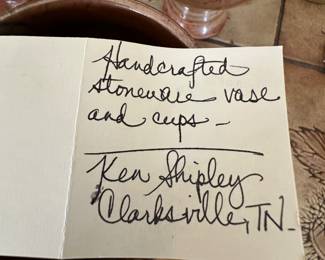 Handcrafted
stoneware vase
and cups -
Ken Shipley
Clarksville, TN.